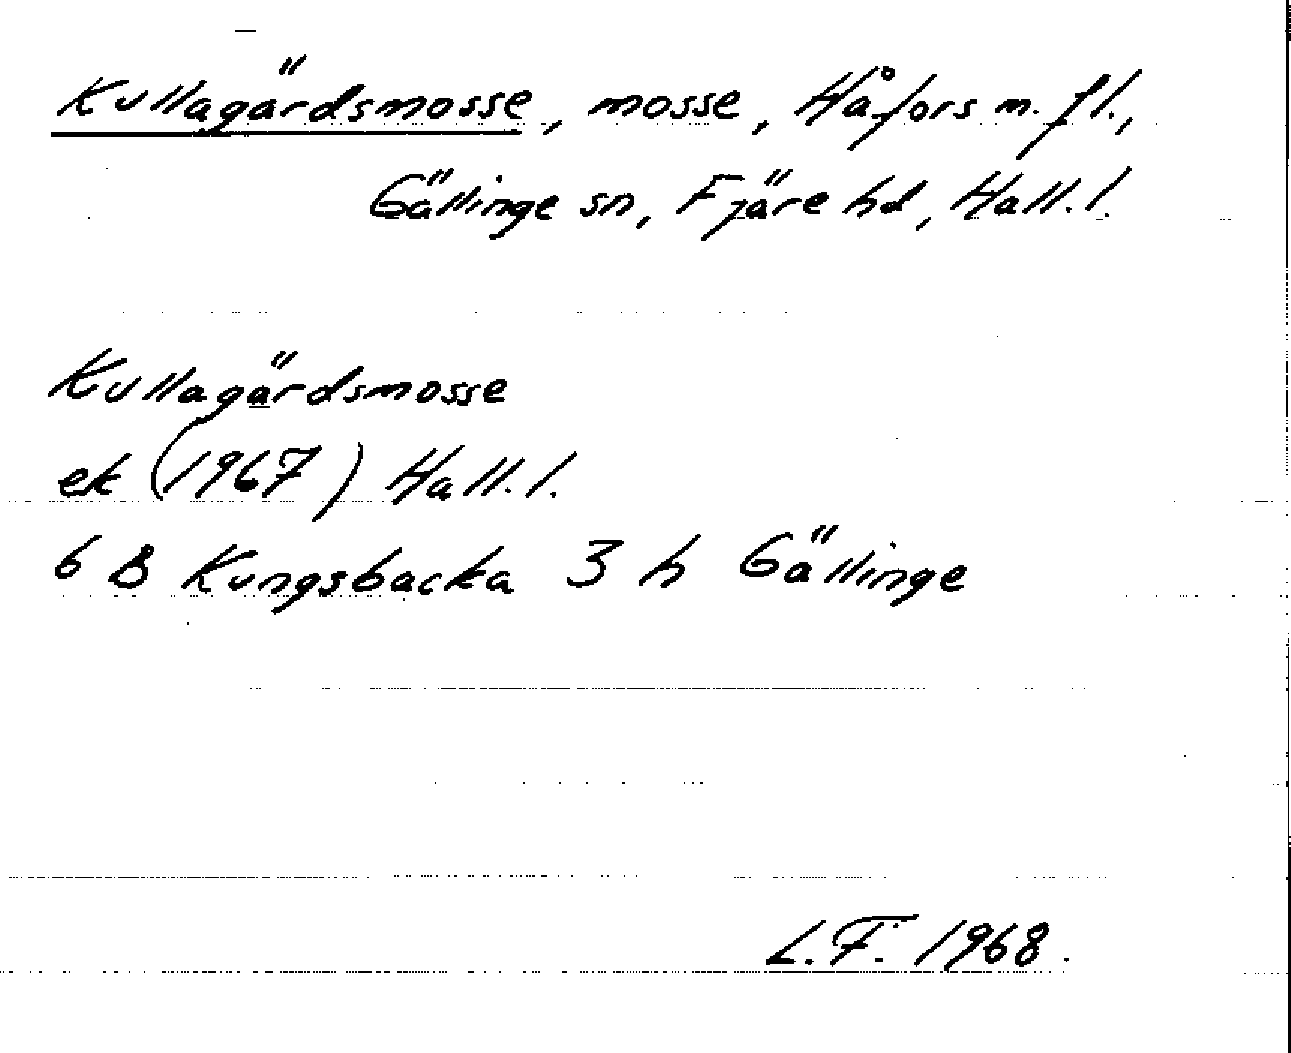 Kullagärdsmosse, mosse, Håfors m. fl.,
Gällinge sn, Fjäre hd, Hall. l.
Kullagärdsmosse
ek (1967) Hall. l.
6 B Kungsbacka 3 h Gällinge
L.F. 1968.